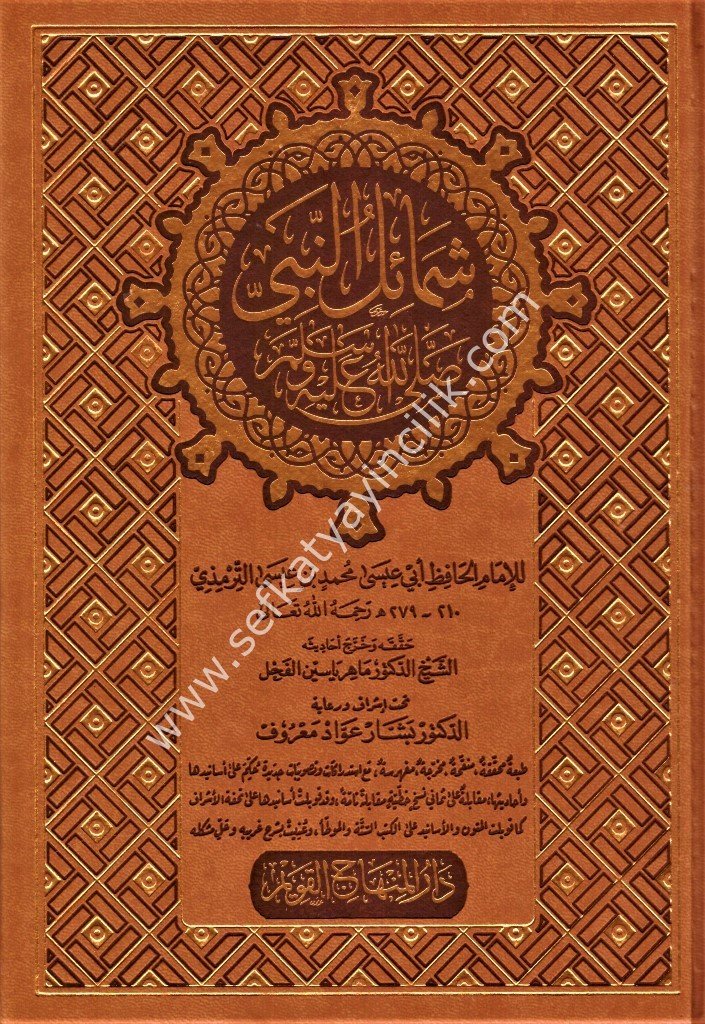 شَمَائِلُ النَّبِيِّ
صَلَّى اللهُ عَلَيْهِ وَسَلَّمَ
للإمَامِ الحَافِظِ أَبِي عِيسَى مُحَمَّد بن عِيسَى التِّرْمِذِيّ
٢١٠ - ٢٧٩ هـ رَحِمَهُ اللهُ تَعَالَى
حَقَّقَهُ وَخَرَّجَ أَحَادِيثَه
الشَّيْخُ الدّكتُور مَاهِر يَاسِين الفَحْل
تحت إشراف ورعاية
الدّكتُور بَشَّار عَوَّاد مَعْرُوف
طبعة محققة، منقّحة، مخرّجة، مفهرسة، مع استدراكات وتصويبات جديدة تحكيم على أسانيدها
وأحاديثها، مقابلة على ثماني نسخ خطيّة مقابلة تامّة، وقد قوبلت أسانيدها على تحفة الأشراف
كما قوبلت المتون والأسانيد على الكتب الستّة والموطأ، وعُنيت بشرح غريبه وحلّ مشكله
دَارُ المِنْهَاجِ القَوِيم
www.sefkatyayincilik.com